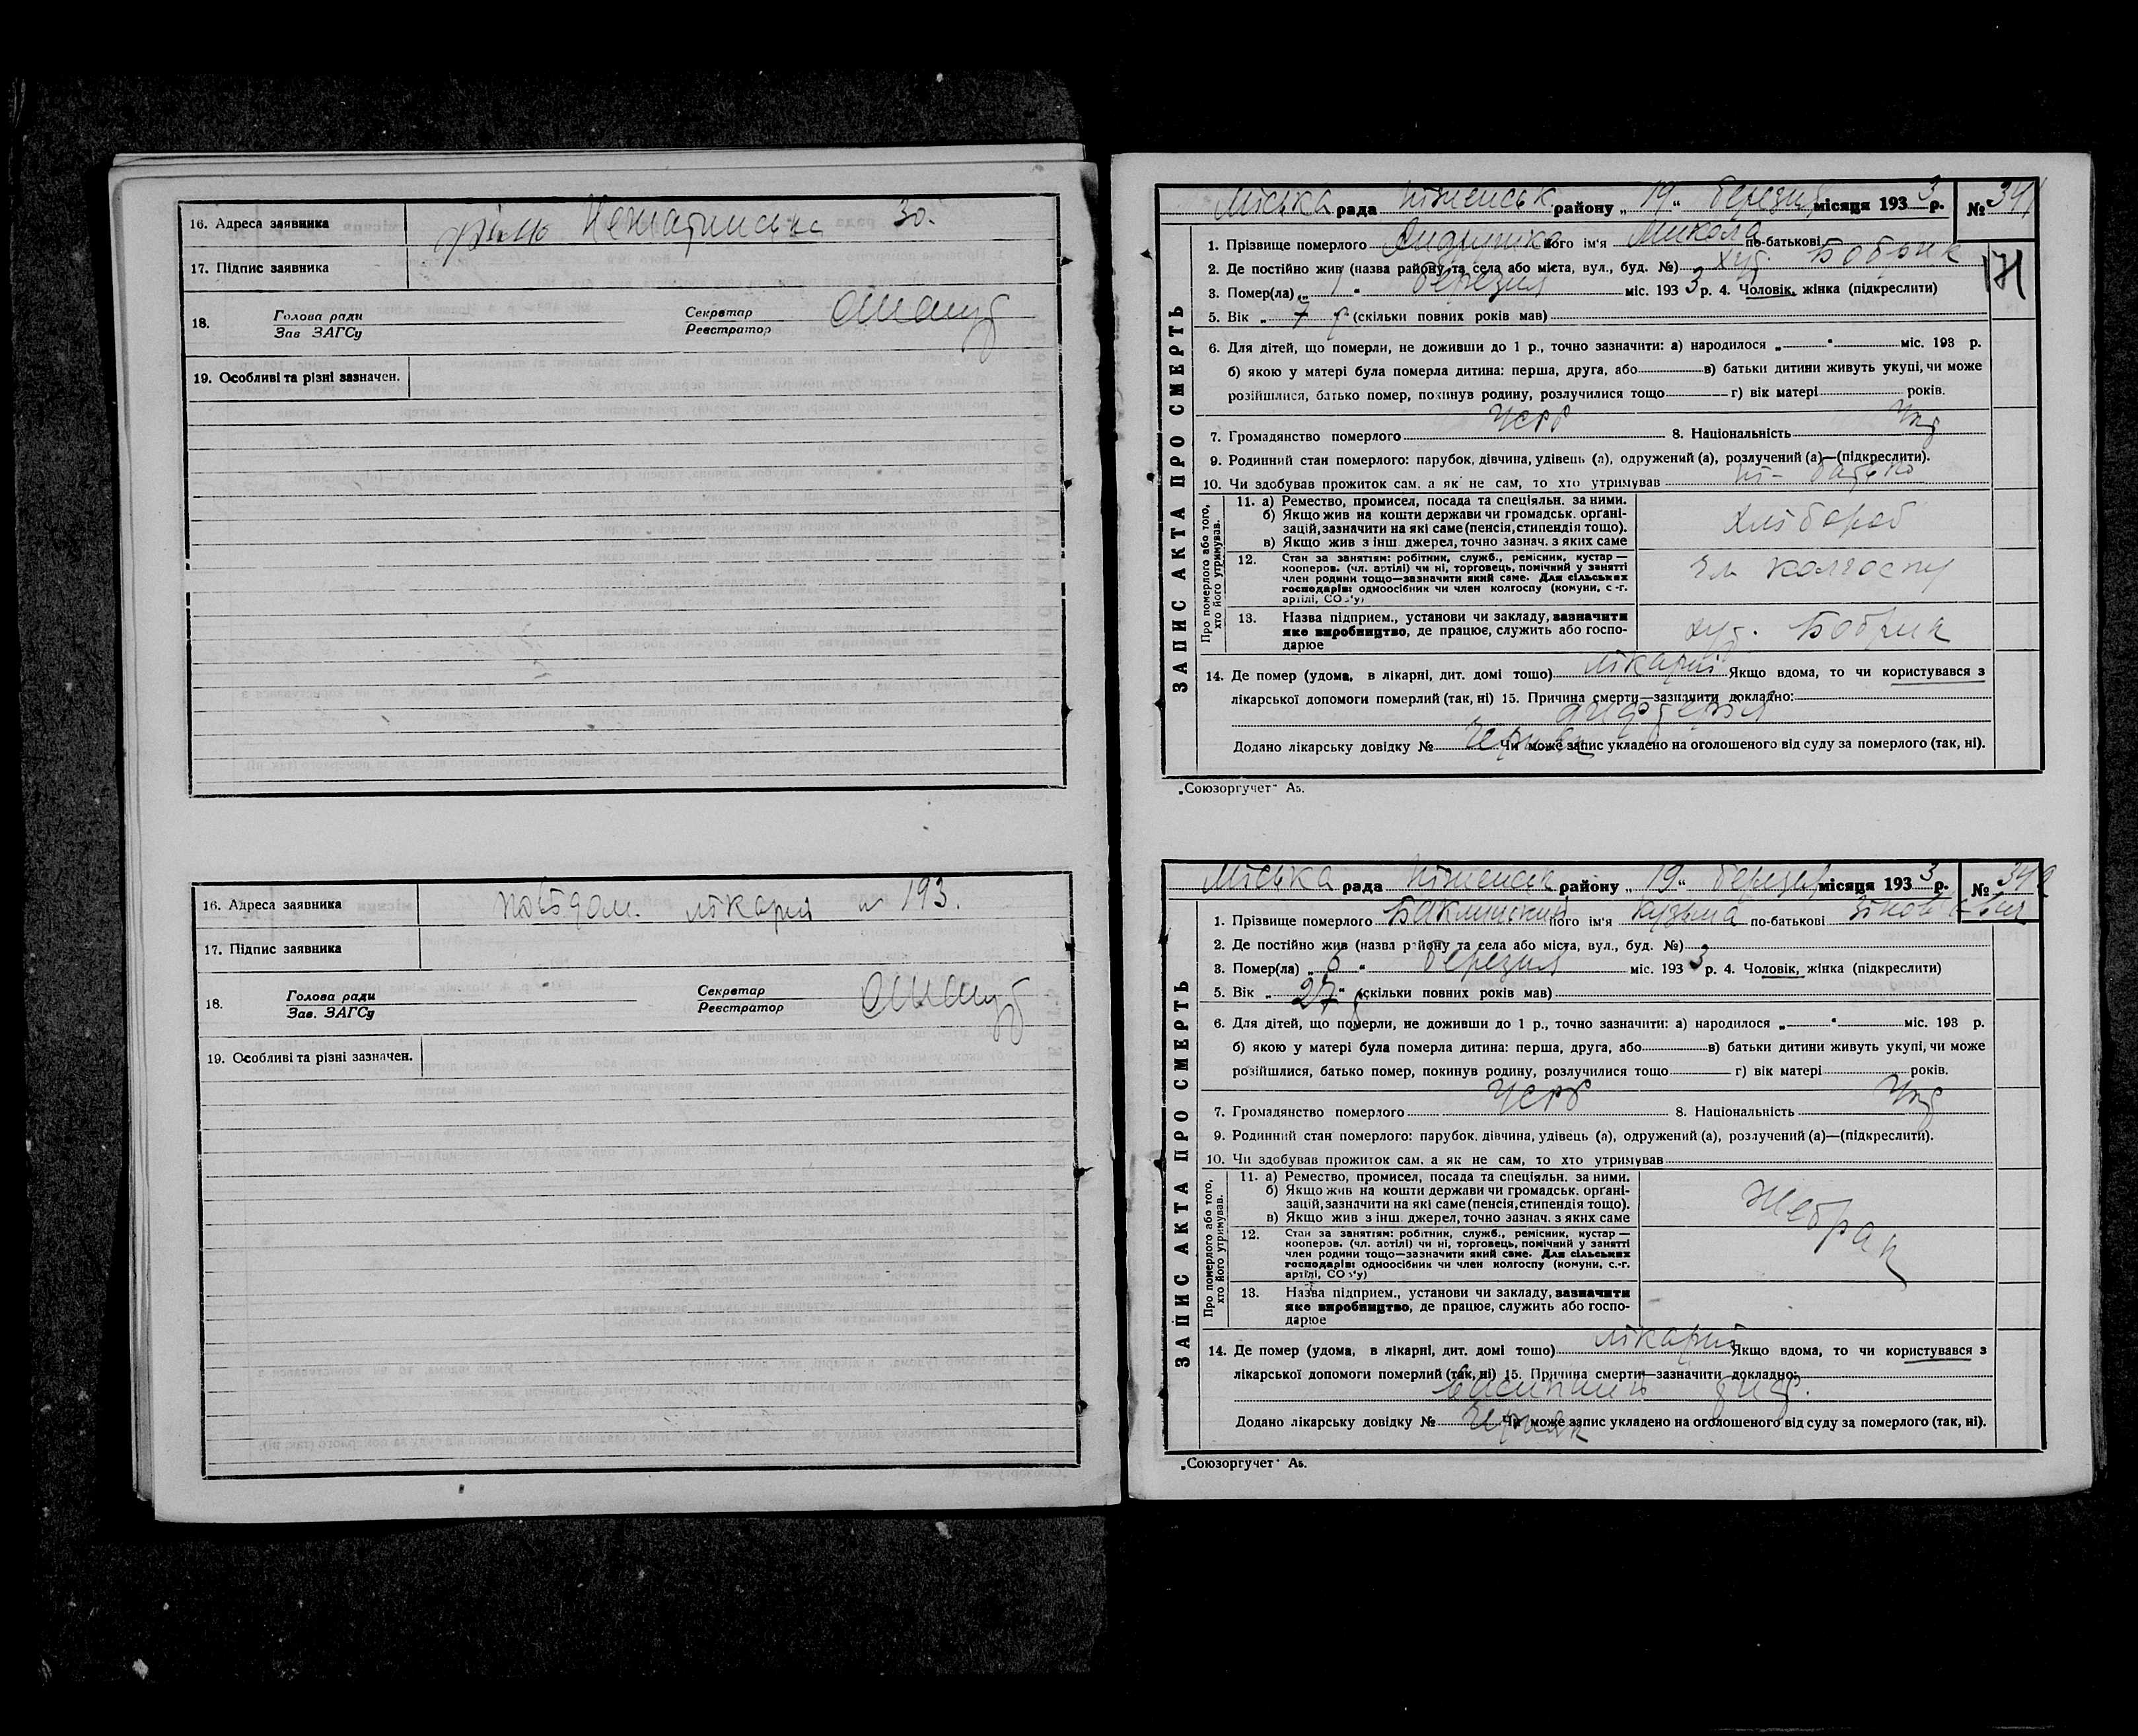 16. Адреса заявника 30.
17. Підпис заявника
18. Голова ради Секретар
Зав ЗАГСу Реєстратор
19. Особливі та різні зазначен.
16. Адреса заявника повідом. лікарні № 193.
17. Підпис заявника
18. Голова ради Секретар
Зав. ЗАГСу Реєстратор
19. Особливі та різні зазначен.
ЗАПИС АКТА ПРО СМЕРТЬ
Міська рада Ніженськ району „ 19 “ березня місяця 1933 р. № 341
171
1. Прізвище померлого його ім'я Микола по-батькові
2. Де постійно жив (назва району та села або міста, вул., буд. №) хут. Бобрик
3. Помер(ла) „ 1 “ березня міс. 1933 р. 4. Чоловік, жінка (підкреслити)
5. Вік „ 7 р “ (скільки повних років мав)
6. Для дітей, що померли, не доживши до 1 р., точно зазначити: а) народилося „ “ міс. 193 р.
б) якою у матері була померла дитина: перша, друга, або в) батьки дитини живуть укупі, чи може
розійшлися, батько помер, покинув родину, розлучилися тощо г) вік матері років.
7. Громадянство померлого УСРР 8. Національність Укр
9. Родинний стан померлого: парубок, дівчина, удівець (а), одружений (а), розлучений (а)—(підкреслити).
10. Чи здобував прожиток сам, а як не сам, то хто утримував ні - батько
Про померлого або того, хто його утримував.
11. а) Ремество, промисел, посада та спеціяльн. за ними.
б) Якщо жив на кошти держави чи громадськ. орґані-
зацій, зазначити на які саме (пенсія, стипендія тощо).
в) Якщо жив з інш. джерел, точно зазнач. з яких саме
хлібороб
12. Стан за занятям: робітник, служб., ремісник, кустар —
кооперов. (чл. артілі) чи ні, торговець, помічний у занятті
член родини тощо—зазначити який саме. Для сільських
господарів: одноосібник чи член колгоспу (комуни, с.-г.
артілі, СОЗ'у)
чл колгоспу
13. Назва підприєм., установи чи закладу, зазначити
яке виробництво, де працює, служить або госпо-
дарює
хут. Бобрик
14. Де помер (удома, в лікарні, дит. домі тошо) лікарні Якщо вдома, то чи користувався з
лікарської допомоги померлий (так, ні) 15. Причина смерти—зазначити докладно:
дифтерія
Додано лікарську довідку № Черняк Чи може запис укладено на оголошеного від суду за померлого (так, ні).
„Союзоргучет“ А5.
ЗАПИС АКТА ПРО СМЕРТЬ
Міська рада Ніженськ району „ 19 “ березня місяця 1933 р. № 342
1. Прізвище померлого його ім'я Кузьма по-батькові
2. Де постійно жив (назва району та села або міста, вул., буд. №)
3. Помер(ла) „ 6 “ березня міс. 1933 р. 4. Чоловік, жінка (підкреслити)
5. Вік „ 27 р “ (скільки повних років мав)
6. Для дітей, що померли, не доживши до 1 р., точно зазначити: а) народилося „ “ міс. 193 р.
б) якою у матері була померла дитина: перша, друга, або в) батьки дитини живуть укупі, чи може
розійшлися, батько помер, покинув родину, розлучилися тощо г) вік матері років.
7. Громадянство померлого УСРР 8. Національність Укр
9. Родинний стан померлого: парубок, дівчина, удівець (а), одружений (а), розлучений (а)—(підкреслити).
10. Чи здобував прожиток сам, а як не сам, то хто утримував
Про померлого або того, хто його утримував.
11. а) Ремество, промисел, посада та спеціяльн. за ними.
б) Якщо жив на кошти держави чи громадськ. орґані-
зацій, зазначити на які саме (пенсія, стипендія тощо).
в) Якщо жив з інш. джерел, точно зазнач. з яких саме
Жебрак
12. Стан за занятям: робітник, служб., ремісник, кустар —
кооперов. (чл. артілі) чи ні, торговець, помічний у занятті
член родини тощо—зазначити який саме. Для сільських
господарів: одноосібник чи член колгоспу (комуни, с.-г.
артілі, СОЗ'у)
13. Назва підприєм., установи чи закладу, зазначити
яке виробництво, де працює, служить або госпо-
дарює
14. Де помер (удома, в лікарні, дит. домі тошо) лікарні Якщо вдома, то чи користувався з
лікарської допомоги померлий (так, ні) 15. Причина смерти—зазначити докладно:
Додано лікарську довідку № Черняк Чи може запис укладено на оголошеного від суду за померлого (так, ні).
„Союзоргучет“ А5.